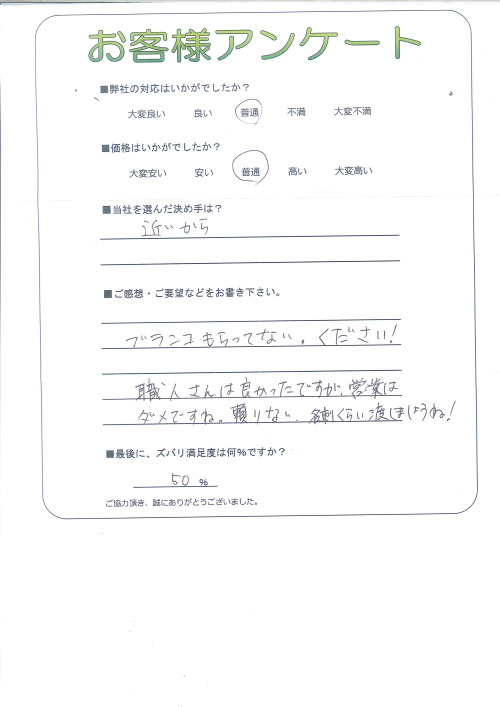 お客様アンケート
■弊社の対応はいかがでしたか？
大変良い 良い 普通 不満 大変不満
■価格はいかがでしたか？
大変安い 安い 普通 高い 大変高い
■当社を選んだ決め手は？
近いから
■ご感想・ご要望などをお書き下さい。
ブランコもらってない。ください！
職人さんは良かったですが、営業は
ダメですね。頼りない、名刺くらい渡しましょうね！
■最後に、ズバリ満足度は何%ですか？
50 %
ご協力頂き、誠にありがとうございました。